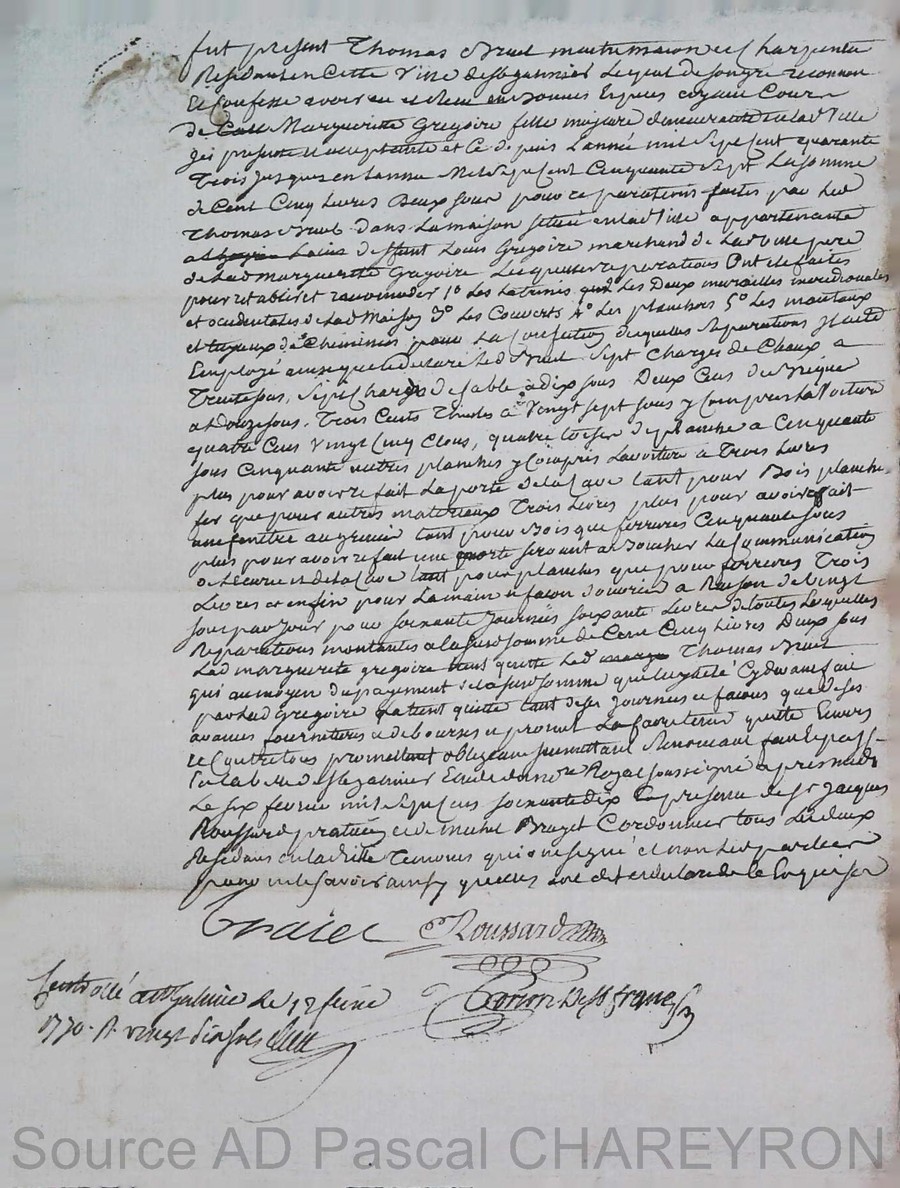 fut present Thomas Bruel maitre maçon et Charpentié
Residant en Cette Ville de st galmier Lequel de son gre reconnoit
Et Confesse avoir eu et Receu en bonnes Especes ayant Cour
de Marguerite Gregoire fille majeure demeurante en lad Ville
Icy presente et acceptante et Ce depuis l'année mil Sept Cent quarante
Trois jusques en l'année Mil Sept Cent Cinquante Sept La Somme
de Cent Cinq Livres Deux sous pour reparations faites par Led
Thomas Bruel dans La maison située en lad Ville appartenante
a deffunt Louis Gregoire marchand de Lad Ville pere
de Lad Marguerite Gregoire Lesquelles reparations Ont ete faites
pour retablir et racomoder 1º Les Latrines 2º Les Deux murailles meridionales
et occidentales de Lad Maison 3º Les Couverts 4º Les planchers 5º Les manteaux
et tuyaux de Cheminées pour La Confection desquelles Reparations Il a été
Employé ainsy que le declare Led Bruel Sept Charges de Chaux a
Trente sous, Sept Charges de Sable a dix sous Deux Cens de brique
a douze sous, Trois Cents Thuiles a Vingt sept sous y Compris La Voiture
quatre Cens Vingt Cinq Clous, quatre toises de planche a Cinquante
sous Cinquante autres planches y Compris La voiture a Trois Livres
plus pour avoir refait La porte de la Cave tant pour Bois planche
fer que pour autres materieaux Trois Livres plus pour avoir refait
une fenêtre au grenier tant pour Bois que ferrures Cinquante sous
plus pour avoir refait une porte servant a Boucher La Communication
de L'écurie et de la Cave tant pour planches que pour ferrures Trois
Livres et enfin pour La main et façon d'ouvrier a Raison de vingt
sous par Jour pour soixante Journées soixante Livres de toutes Lesquelles
Reparations montantes a la susd somme de Cent Cinq Livres Deux sous
Lad marguerite gregoire quitte Led Thomas Bruel
qui au moyen du payement de la susd somme qui luy a été Cydevant fait
par Lad Gregoire La tient quitte tant de ses Journées et façons que de ses
avances fournitures et debourses et promet La faire tenir quitte Envers
et Contre tous promettant obligeant soumettant Renonceant fait et passé
en la Ville de st galmier Etude du nore Royal soussigné apres midy
Le six fevrier mil sept cens soixante dix En presence de sr Jacques
Roussard praticien et de michel Bruyet Cordonnier tous Les deux
Residans en lad Ville Temoins qui ont signé et non Les parties
pour ne le savoir ainsy qu'elles ont dit et declaré de ce Enquises
Roussard
Controllé a st Galmier le 12 fevrier
1770. R. vingt six sols